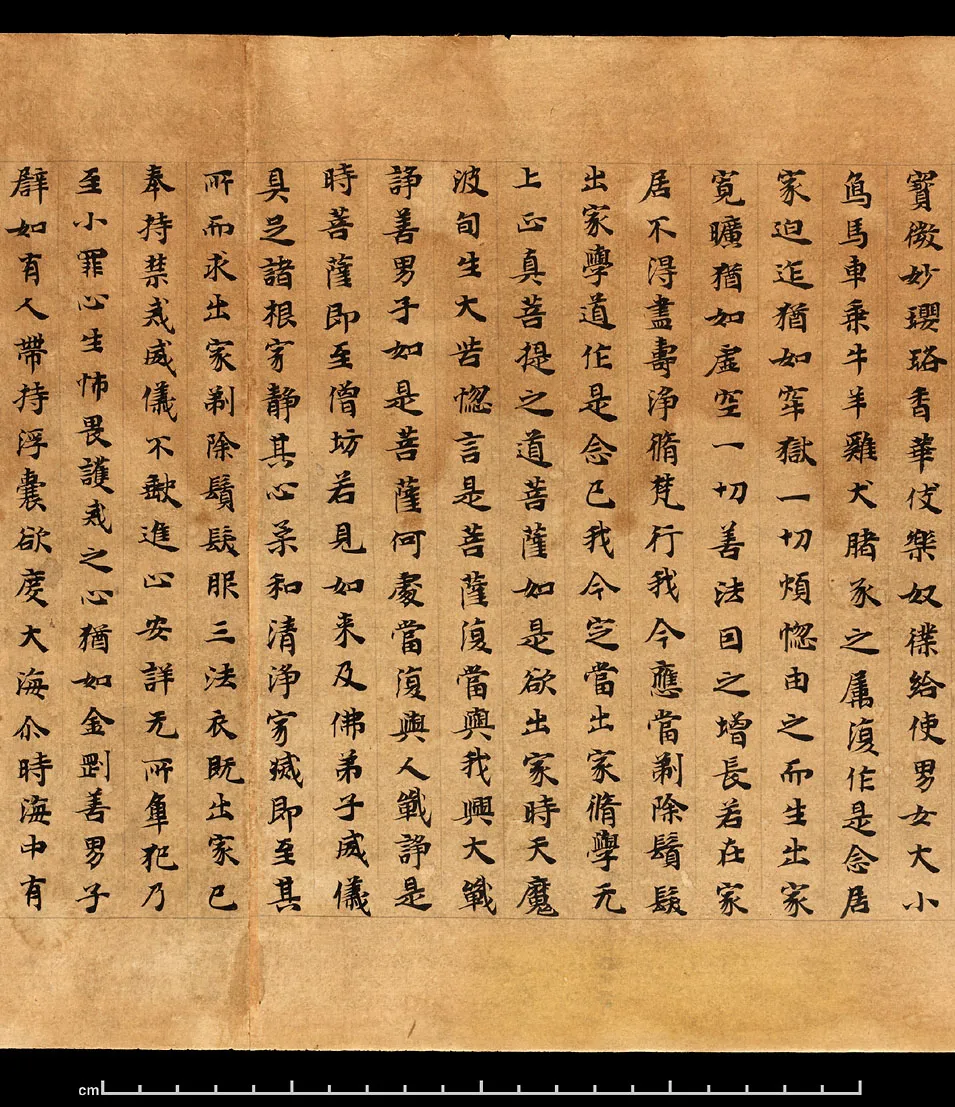 寶微妙瓔珞香華伎樂奴僕給使男女大小
鳥馬車乗牛羊雞犬賭豕之属復作是念居
家迫迮猶如窂獄一切煩惚由之而生出家
寛曠猶如虚空一切善法因之增長若在家
居不得盡壽淨脩梵行我今應當剃除鬚髮
出家學道作是念已我今定當出家脩學无
上正真菩提之道菩薩如是欲出家時天魔
波旬生大苦惚言是菩薩復當與我興大戰
諍善男子如是菩薩何處當復與人戰諍是
時菩薩即至僧坊若見如来及佛弟子威儀
具足諸根寂静其心柔和清淨寂滅即至其
所而求出家剃除鬚髮服三法衣既出家已
奉持禁戒威儀不缺進止安詳无所犯乃
至小罪心生怖畏護戒之心猶如金剛善男子
辟如有人帶持浮囊欲度大海尒時海中有
cm